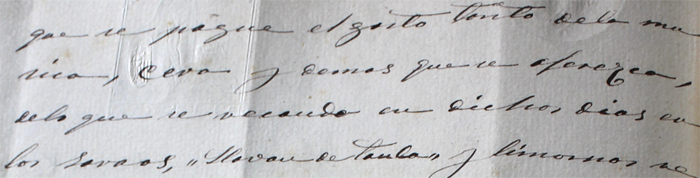 que se pague el gasto tanto de la mu
sica, cera y demas que se ofrezca,
de lo que se recauda en dichos dias en
los saraos, "Llevar de tanda" y limosnas se